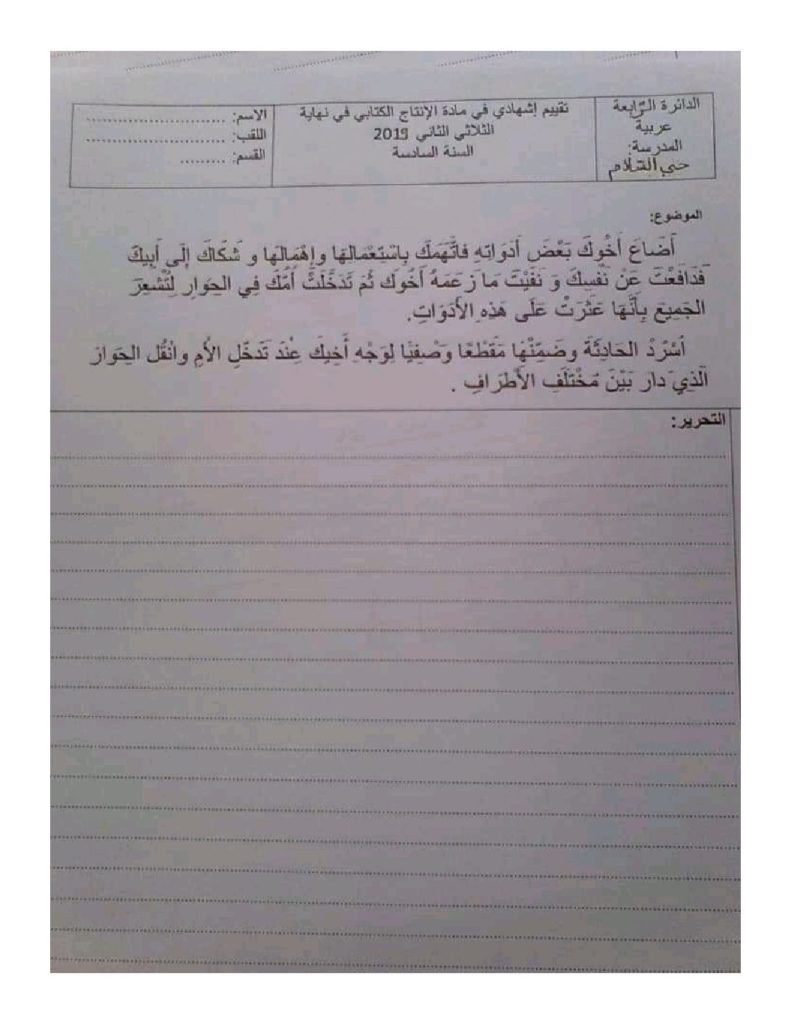 الدائرة الرّابعة
عربية
المدرسة:
حي السّلام
تقييم إشهادي في مادة الإنتاج الكتابي في نهاية
الثلاثي الثاني 2019
السنة السادسة
الاسم: ............................
اللقب: ............................
القسم: .........
الموضوع:
أَضَاعَ أَخُوكَ بَعْضَ أَدَوَاتِهِ فَاتَّهَمَكَ بِاسْتِعْمَالِهَا وإِهْمَالِهَا و شَكَاكَ إِلَى أَبِيكَ
فَدَافَعْتَ عَنْ نَفْسِكَ وَ نَفَيْتَ مَا زَعَمَهُ أَخُوكَ ثُمَ تَدَخَّلَتْ أُمُّكَ فِي الحِوَارِ لِتُشْعِرَ
الجَمِيعَ بِأَنَّهَا عَثَرَتْ عَلَى هَذِهِ الأَدَوَاتِ.
اُسْرُدْ الحَادِثَةَ وضَمِّنْهَا مَقْطَعًا وَصْفِيًا لِوَجْهِ أَخِيكَ عِنْدَ تَدَخّلِ الأُمِ وانْقُل الحِوَارَ
الَّذِي دَار بَيْنَ مُخْتَلَفِ الأَطْرَافِ .
التحرير: